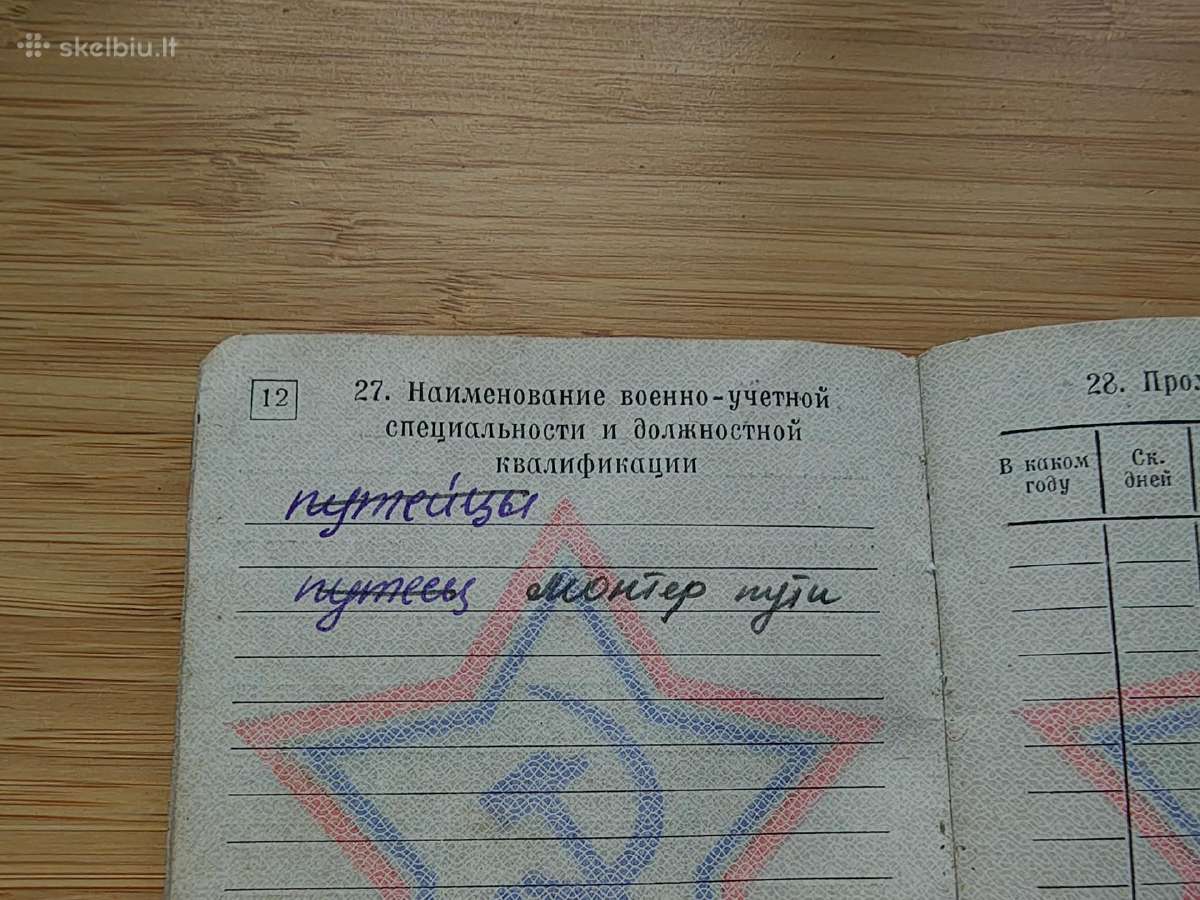 skelbiu.lt
12
27. Наименование военно-учетной
специальности и должностной
квалификации
путейцы
путеец монтер пути
28. Про
В каком
году
Ск.
дней